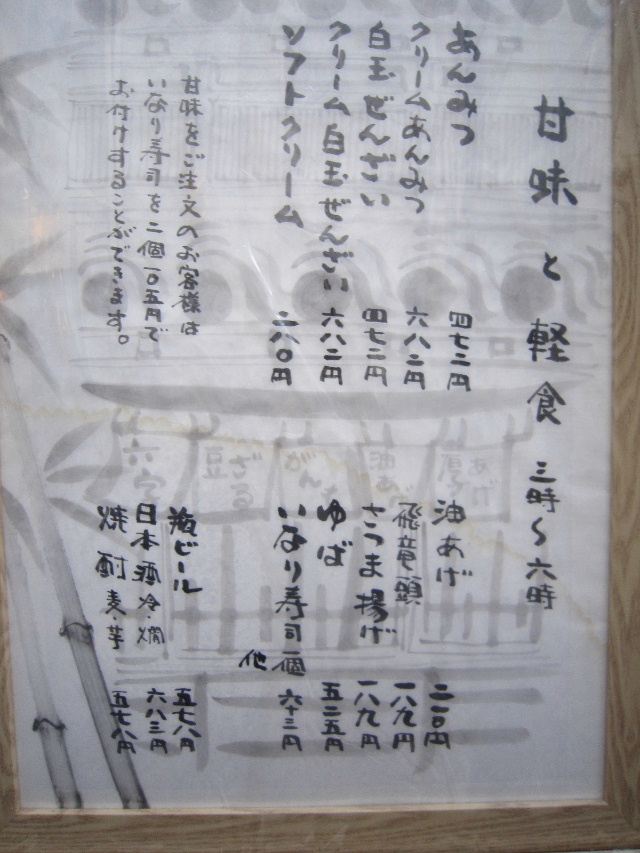 甘味と軽食 三時〜六時
あんみつ 四七二円
クリームあんみつ 六八二円
白玉ぜんざい 四七二円
クリーム白玉ぜんざい 六八二円
ソフトクリーム 二八〇円
甘味をご注文のお客様は
いなり寿司を二個一〇五円で
お付けすることができます。
油あげ 二一〇円
飛竜頭 一八九円
さつま揚げ 一八九円
ゆば 五二五円
いなり寿司一個 六十三円
他
瓶ビール 五七八円
日本酒冷・燗 六八三円
焼酎麦・芋 五七八円